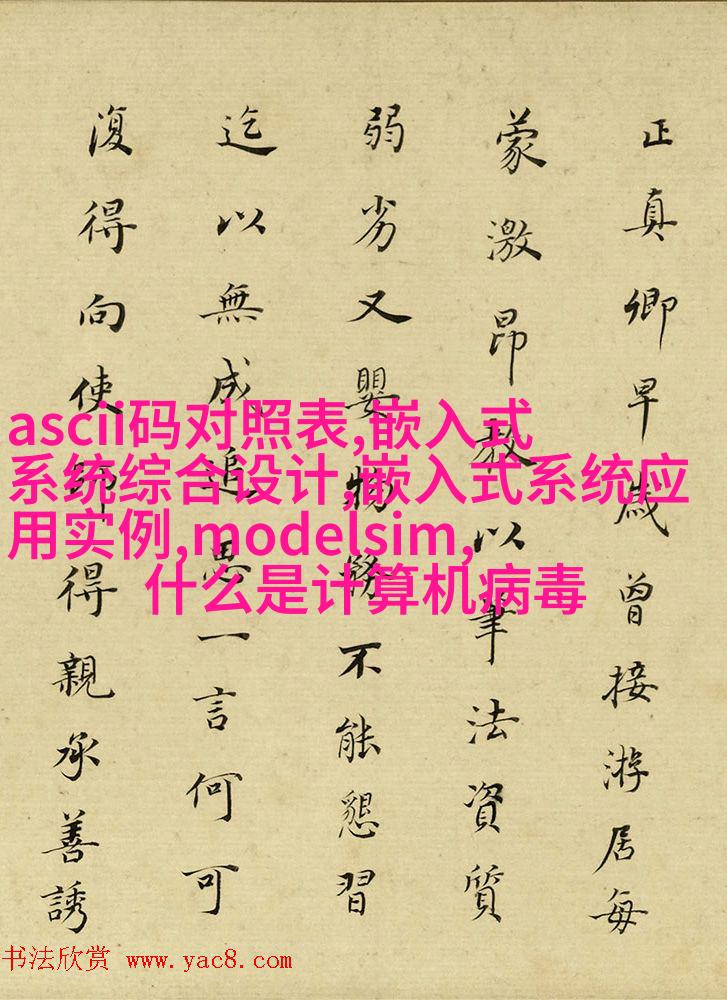 正真卿早歲曾接游居每
蒙激昂教以筆法資質
弱劣又嬰物務不能懇習
迄以無成追思一言何可
復得向使師得親承善誘
ascii码对照表,嵌入式
系统综合设计,嵌入式系统应
用实例,modelsim,
什么是计算机病毒
书法欣赏 www.yac8.com